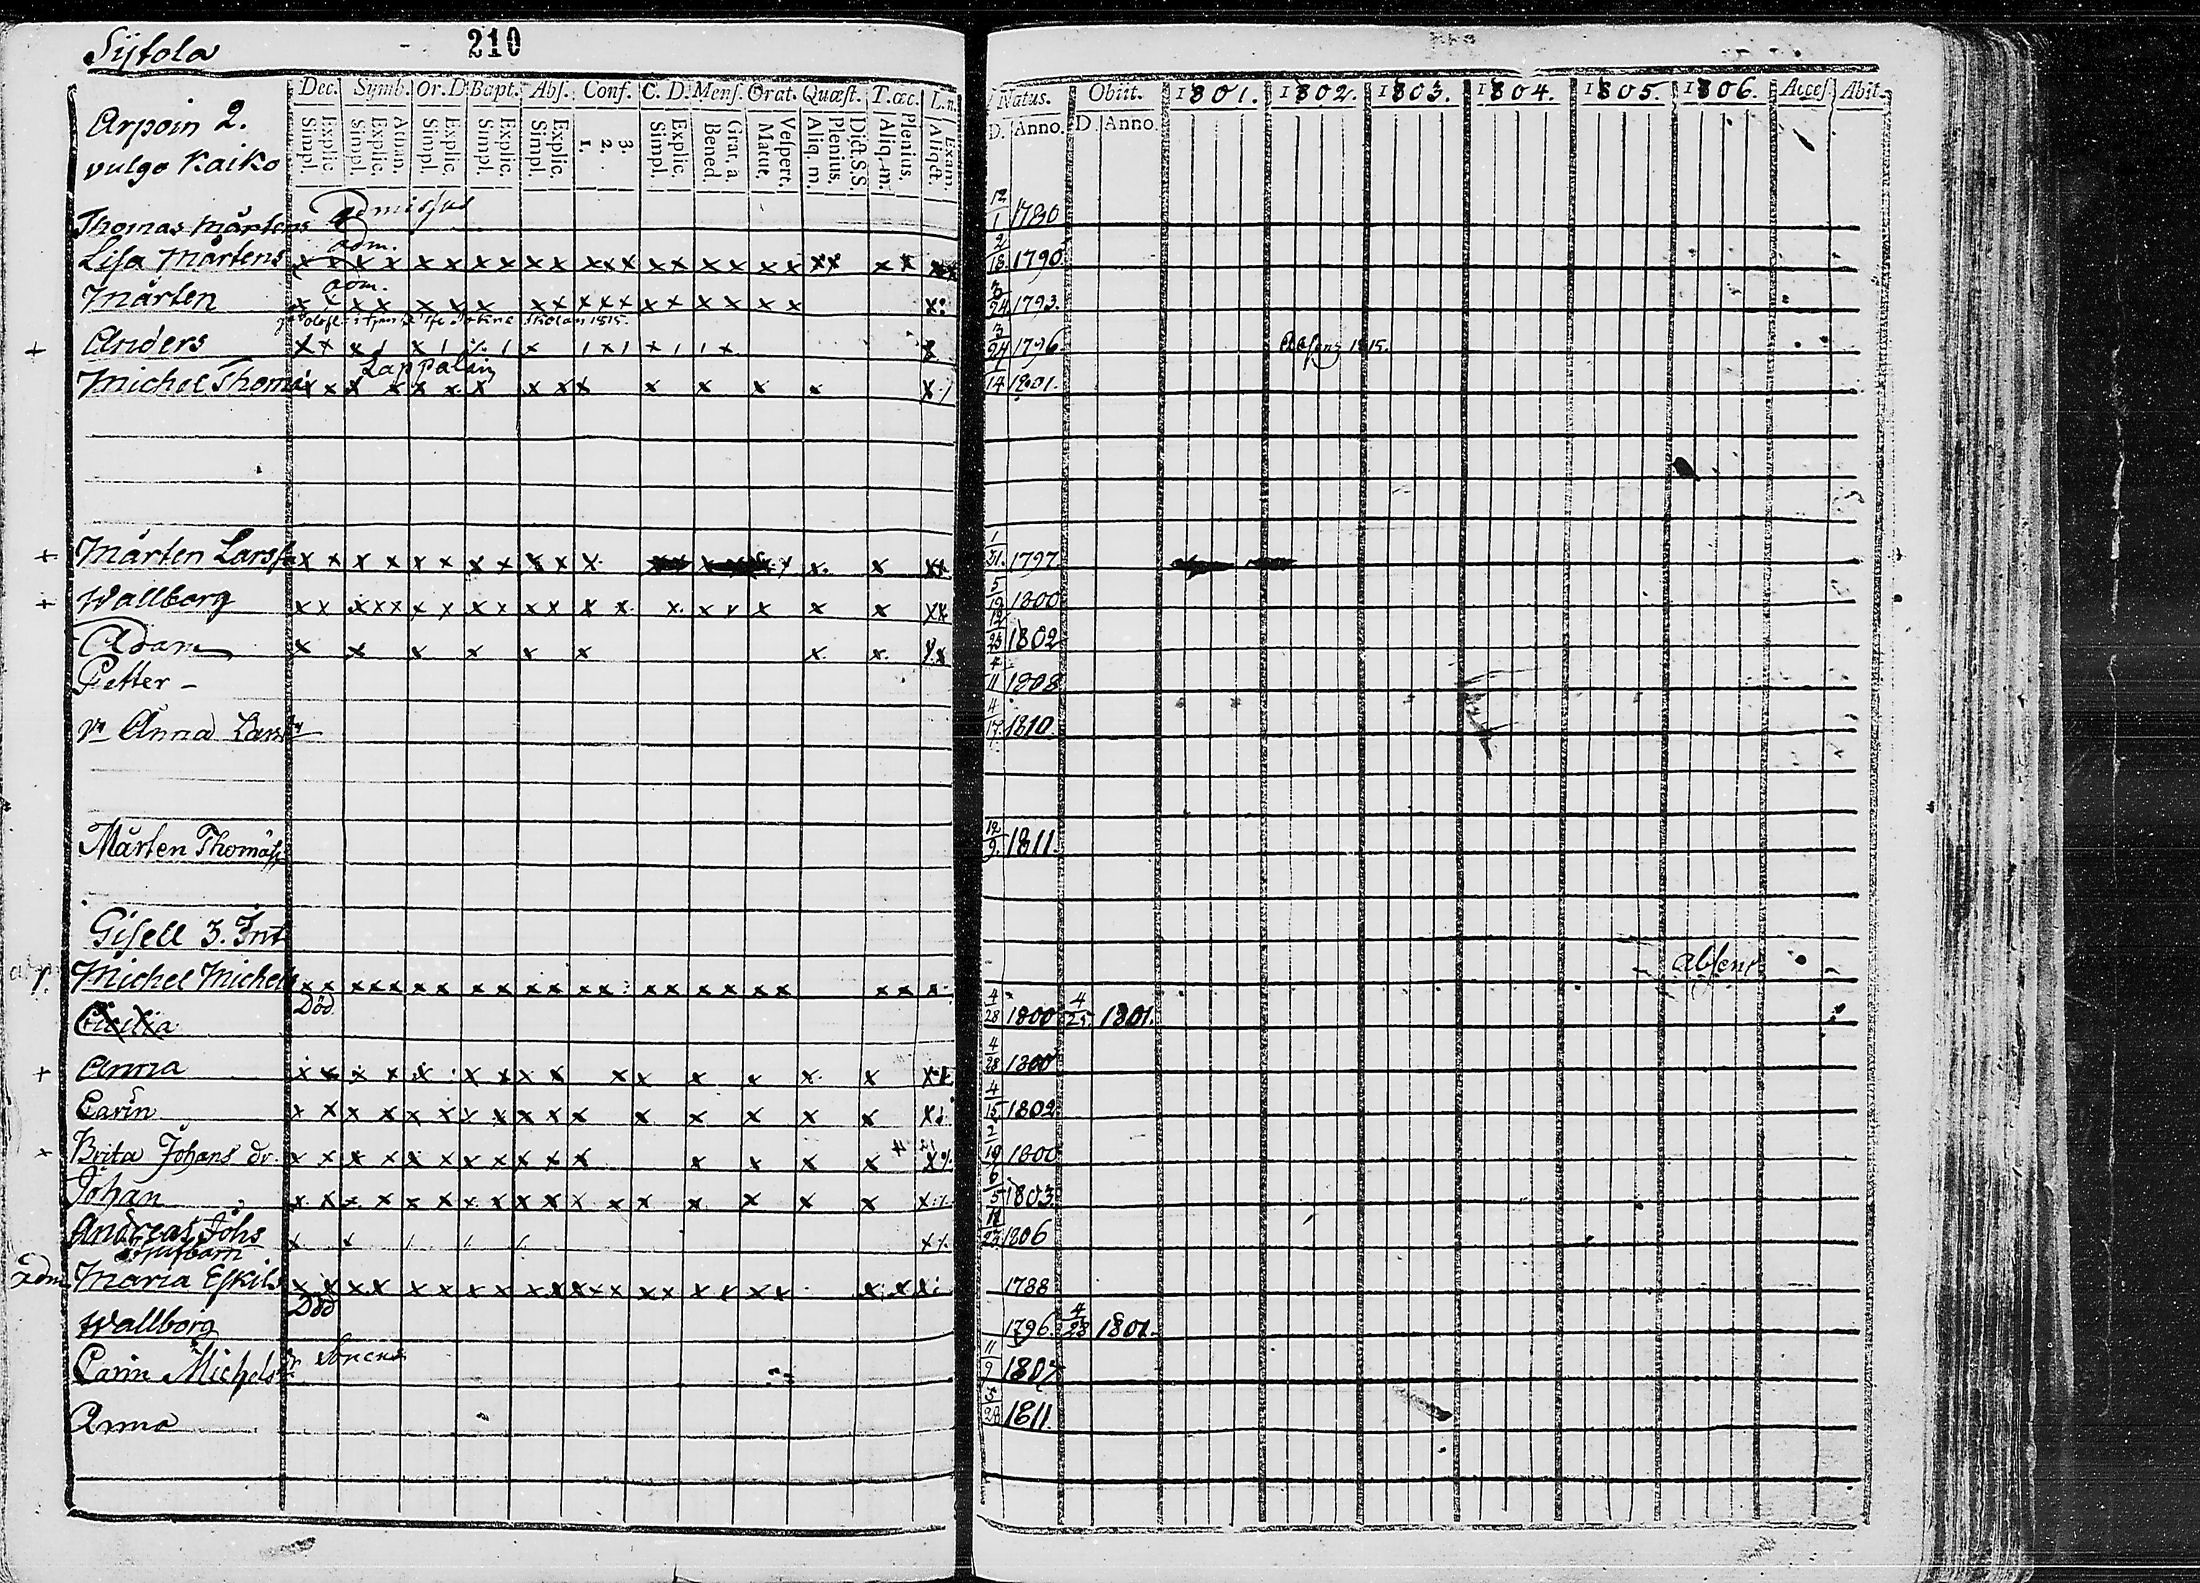 Sijtola 210
Dec. Symb. Or. D. Bapt. Abs. Conf. C. D. Mens. Orat. Quæst. T. œc. L. n.
Natus. Obiit. 1801. 1802. 1803. 1804. 1805. 1806. Acces. Abit.
Explic. Simpl. Athan. Explic. Simpl. Explic. Simpl. Explic. Simpl. Explic. Simpl. 3. 2. 1. Explic. Simpl. Grat. a. Bened. Vespert. Matut. Dict. S.S. Plenius. Aliq. m. Plenius. Aliq. m. Exam. Aliqct.
D. Anno. D. Anno.
Arpoin 2.
vulgo Kaiko
Thomas Mårtens Admissus 12/1 1780
Lisa Mårtens adm. x x x x x x x x x x x x x x x x x x x x x x x x x 2/18 1790
Mårten adm. x x x x x x x x x x x x x x x x x x x 3/24 1793.
+ Anders x x x 1 x 1 x 1 x 1 x 1 x 1 1 x x 3/24 1796 1815.
Michel Thomas Lappalain x x x x x x x x x x x x x x x 14 1801.
+ Mårten Larss x x x x x x x x x x x x x x x 1/31. 1797.
+ Wallborg x x x x x x x x x x x x x x x x x x x x x 5/19 1800
Adam x x x x x x x x x x 12/23 1802
Petter - 4/11 1808
Anna Lars 4/17 1810.
Mårten Thomass 12/9. 1811.
Gisell 3. Int
Michel Michels x x x x x x x x x x x x x x x x x x x x x x absent
Cicilia Död 4/28 1800 4/25. 1801.
+ Anna x x x x x x x x x x x x x x x x 4/28 1800
Carin x x x x x x x x x x x x x x x x 4/15 1802
x Brita Johans dr. x x x x x x x x x x x x x x x x 2/19 1800
Johan x x x x x x x x x x x x x x x x x 6/5 1803.
Andreas Johs x x 1806
adm Maria Eskils x x x x x x x x x x x x x x x x x x x x x x x 1788
Wallborg Död 1796. 4/28 1801.
Carin Michels dr 11/9 180
Anna 1811.